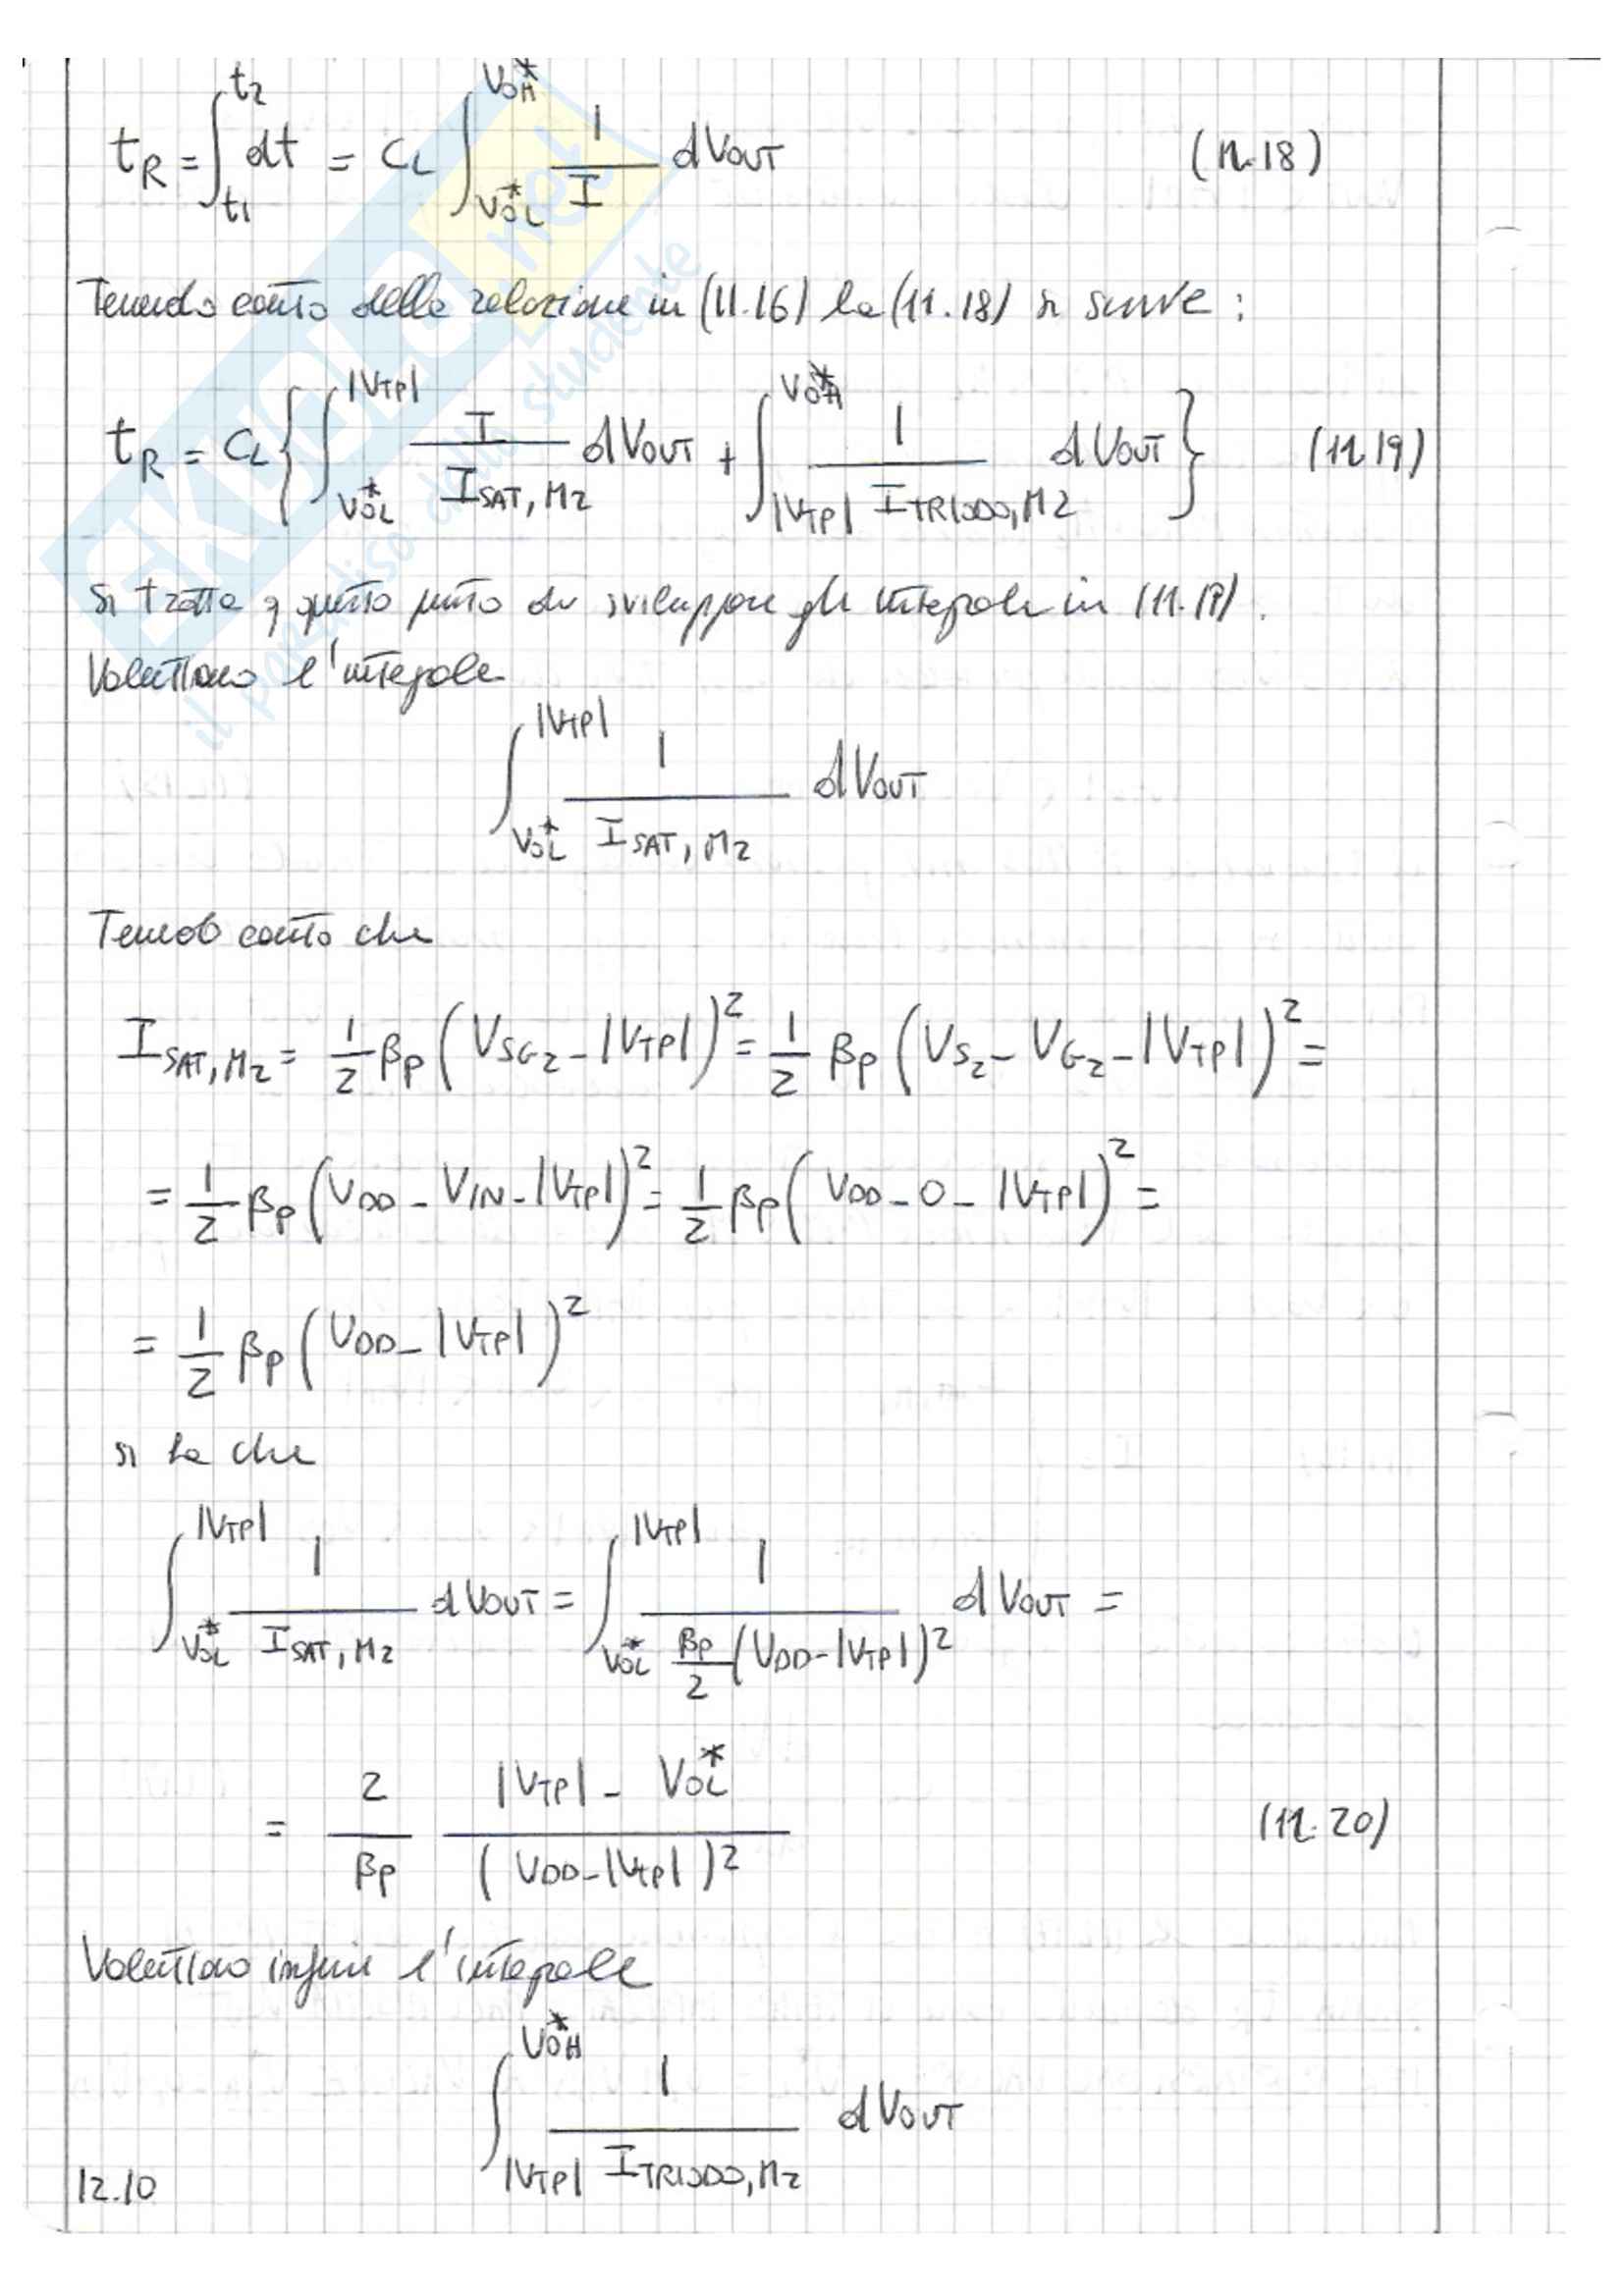 t_R = ∫_{t1}^{t2} dt = C_L ∫_{V_OL*}^{V_OH*} 1/I dV_OUT (11.18)
Tenendo conto della relazione in (11.16) la (11.18) si scrive :
t_R = C_L { ∫_{V_OL*}^{|V_TP|} 1/I_SAT,M2 dV_OUT + ∫_{|V_TP|}^{V_OH*} 1/I_TRIODO,M2 dV_OUT } (11.19)
Si tratta a questo punto di sviluppare gli integrali in (11.19).
Valutiamo l'integrale
∫_{V_OL*}^{|V_TP|} 1/I_SAT,M2 dV_OUT
Tenendo conto che
I_SAT,M2 = 1/2 β_P (V_SG2 - |V_TP|)^2 = 1/2 β_P (V_S2 - V_G2 - |V_TP|)^2 =
= 1/2 β_P (V_DD - V_IN - |V_TP|)^2 = 1/2 β_P (V_DD - 0 - |V_TP|)^2 =
= 1/2 β_P (V_DD - |V_TP|)^2
si ha che
∫_{V_OL*}^{|V_TP|} 1/I_SAT,M2 dV_OUT = ∫_{V_OL*}^{|V_TP|} 1/(β_P/2 (V_DD - |V_TP|)^2) dV_OUT =
= 2/β_P (|V_TP| - V_OL*)/(V_DD - |V_TP|)^2 (11.20)
Valutiamo infine l'integrale
∫_{|V_TP|}^{V_OH*} 1/I_TRIODO,M2 dV_OUT
12.10
il paradiso dello studente